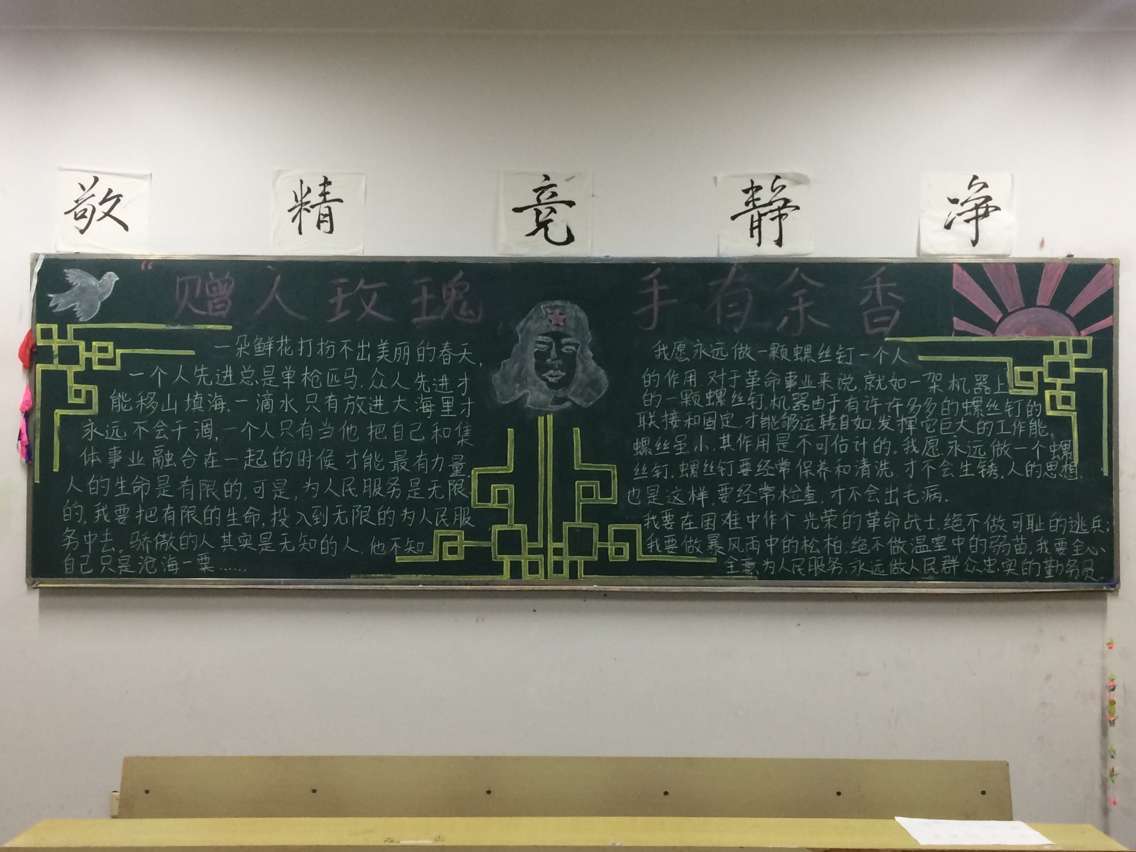 敬 精 竞 静 净
"赠人玫瑰 手有余香
一朵鲜花打扮不出美丽的春天,
一个人先进总是单枪匹马,众人先进才
能移山填海.一滴水只有放进大海里才
永远不会干涸,一个人只有当他把自己和集
体事业融合在一起的时候才能最有力量
人的生命是有限的,可是,为人民服务是无限
的,我要把有限的生命,投入到无限的为人民服
务中去。骄傲的人其实是无知的人,他不知
自己只是沧海一粟……
我愿永远做一颗螺丝钉一个人
的作用,对于革命事业来说,就如一架机器上
的一颗螺丝钉.机器由于有许许多多的螺丝钉的
联接和固定,才能够运转自如发挥它巨大的工作能,
螺丝虽小,其作用是不可估计的。我愿永远做一个螺
丝钉.螺丝钉要经常保养和清洗,才不会生锈。人的思想
也是这样,要经常检查,才不会出毛病.
我要在困难中作个光荣的革命战士,绝不做可耻的逃兵;
我要做暴风雨中的松柏,绝不做温室中的弱苗,我要全心
主意为人民服务,永远做人民群众忠实的勤务员